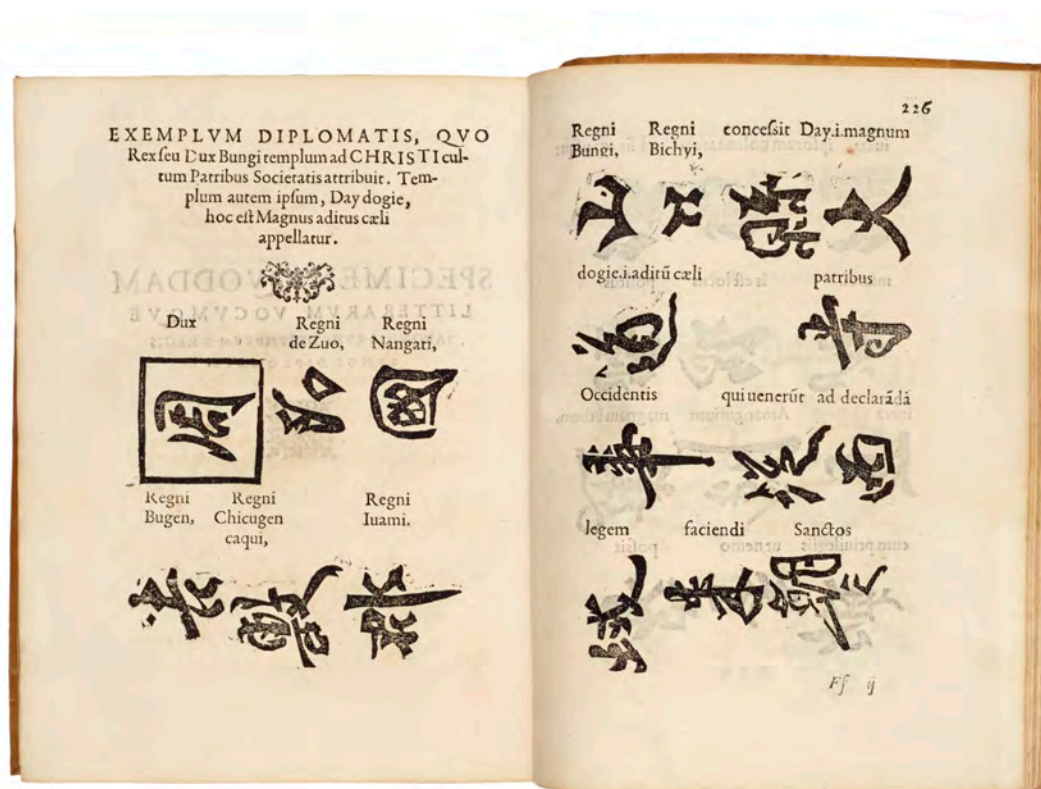 EXEMPLVM DIPLOMATIS, QVO
Rex ſeu Dux Bungi templum ad CHRISTI cul-
tum Patribus Societatis attribuit. Tem-
plum autem ipſum, Day dogie,
hoc eſt Magnus aditus cæli
appellatur.
Dux Regni Regni
de Zuo, Nangati,
周 防 國
Regni Regni Regni
Bugen, Chicugen Iuami.
caqui,
吉 敷 郡
226
Regni Regni conceſsit Day.i.magnum
Bungi, Bichyi,
山 口 縣 大
dogie.i.aditũ cæli patribus
道 寺
Occidentis qui uenerũt ad declarãdã
事 從 西
legem faciendi Sanctos
域 來 朝 之
Ff ij